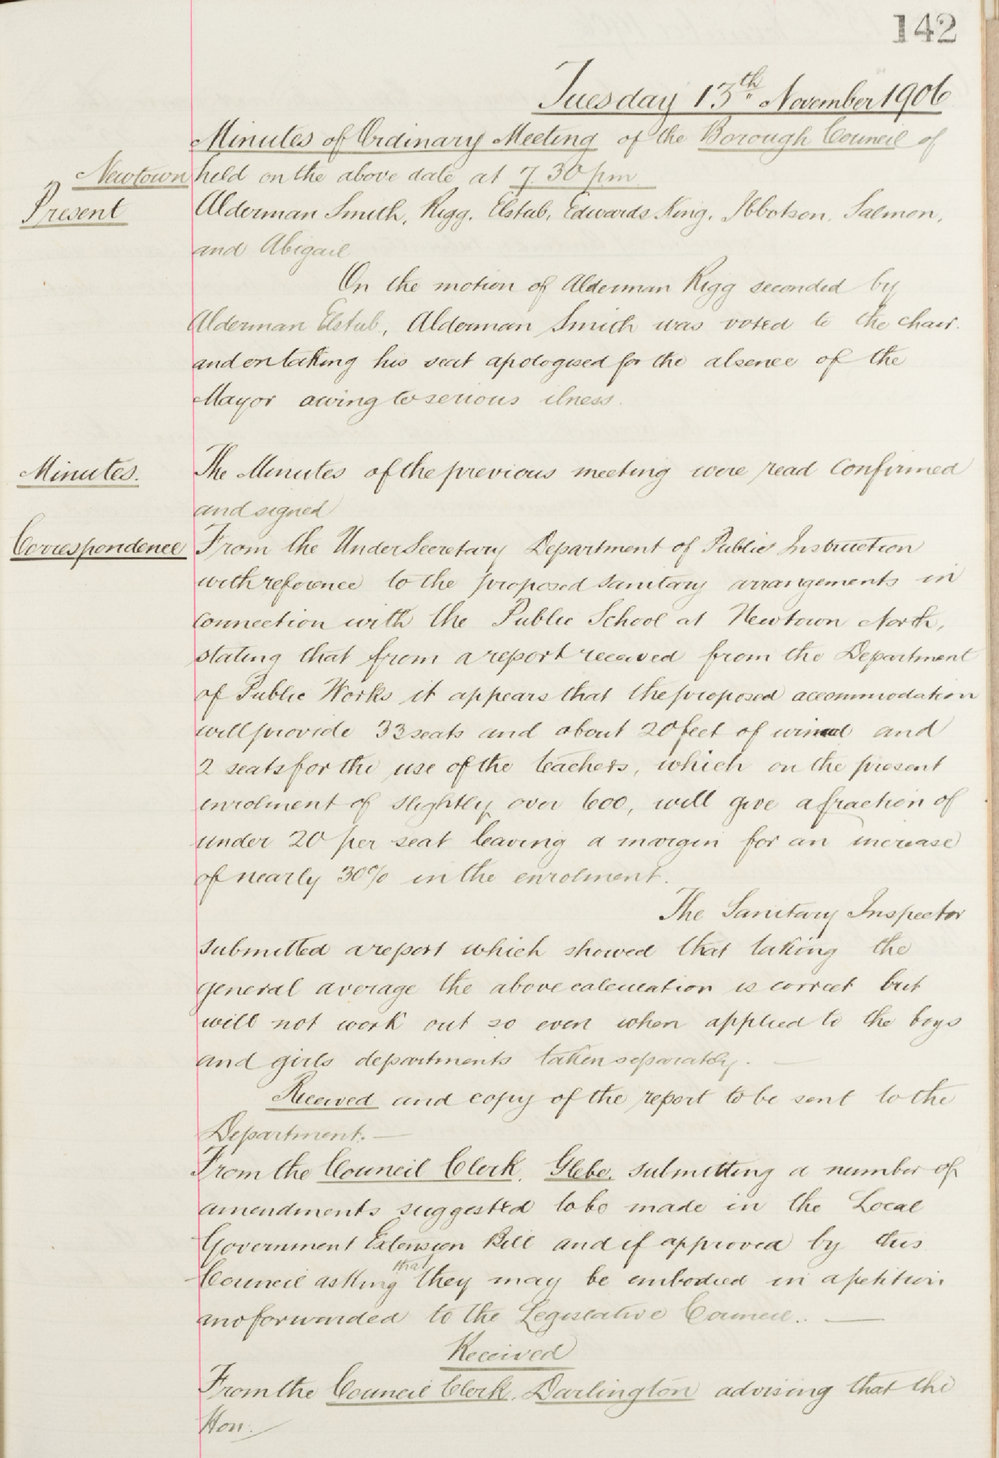 142
Tuesday 13th November 1906
Minutes of Ordinary Meeting of the Borough Council of
Newtown held on the above date at 7.30 pm
Present Alderman Smith, Rigg, Elstub, Edwards King, Ibbotson, Salmon,
and Abigail
On the motion of Alderman Rigg seconded by
Alderman Elstub, Alderman Smith was voted to the chair.
and on taking his seat apologised for the absence of the
Mayor owing to serious ilness.
Minutes. The Minutes of the previous meeting were read confirmed
and signed
Correspondence From the Under Secretary Department of Public Instruction
with reference to the proposed sanitary arrangements in
connection with the Public School at Newtown North,
stating that from a report received from the Department
of Public Works it appears that the proposed accommodation
will provide 33 seats and about 20 feet of and
2 seats for the use of the teachers, which on the present
enrolment of slightly over 600, will give a fraction of
under 20 per seat leaving a margin for an increase
of nearly 30% in the enrolment.
The Sanitary Inspector
submitted a report which showed that taking the
general average the above calculation is correct but
will not work out so even when applied to the boys
and girls departments taken separately. —
Received and copy of the report to be sent to the
Department. —
From the Council Clerk, Glebe, submitting a number of
amendments suggested to be made in the Local
Government Extension Bill and if approved by this
Council asking that they may be embodied in a petition
and forwarded to the Legislative Council. —
Received
From the Council Clerk, Darlington advising that the
Hon.